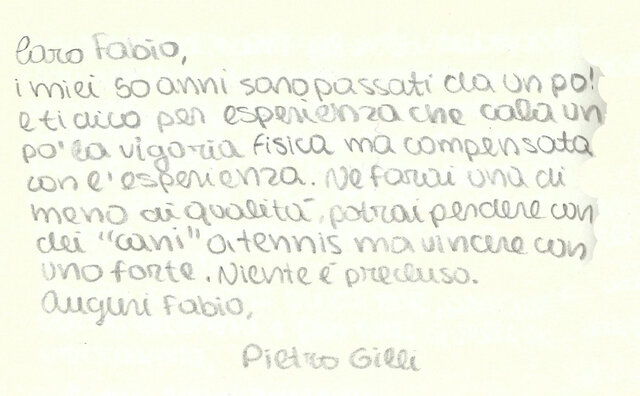 Caro Fabio,
i miei 50 anni sono passati da un po'
e ti dico per esperienza che cala un
po' la vigoria fisica ma compensata
con l'esperienza. Ne farai una di
meno di qualità, potrai perdere con
dei "cani" a tennis ma vincere con
uno forte. Niente è precluso.
Auguri Fabio,
Pietro Gilli